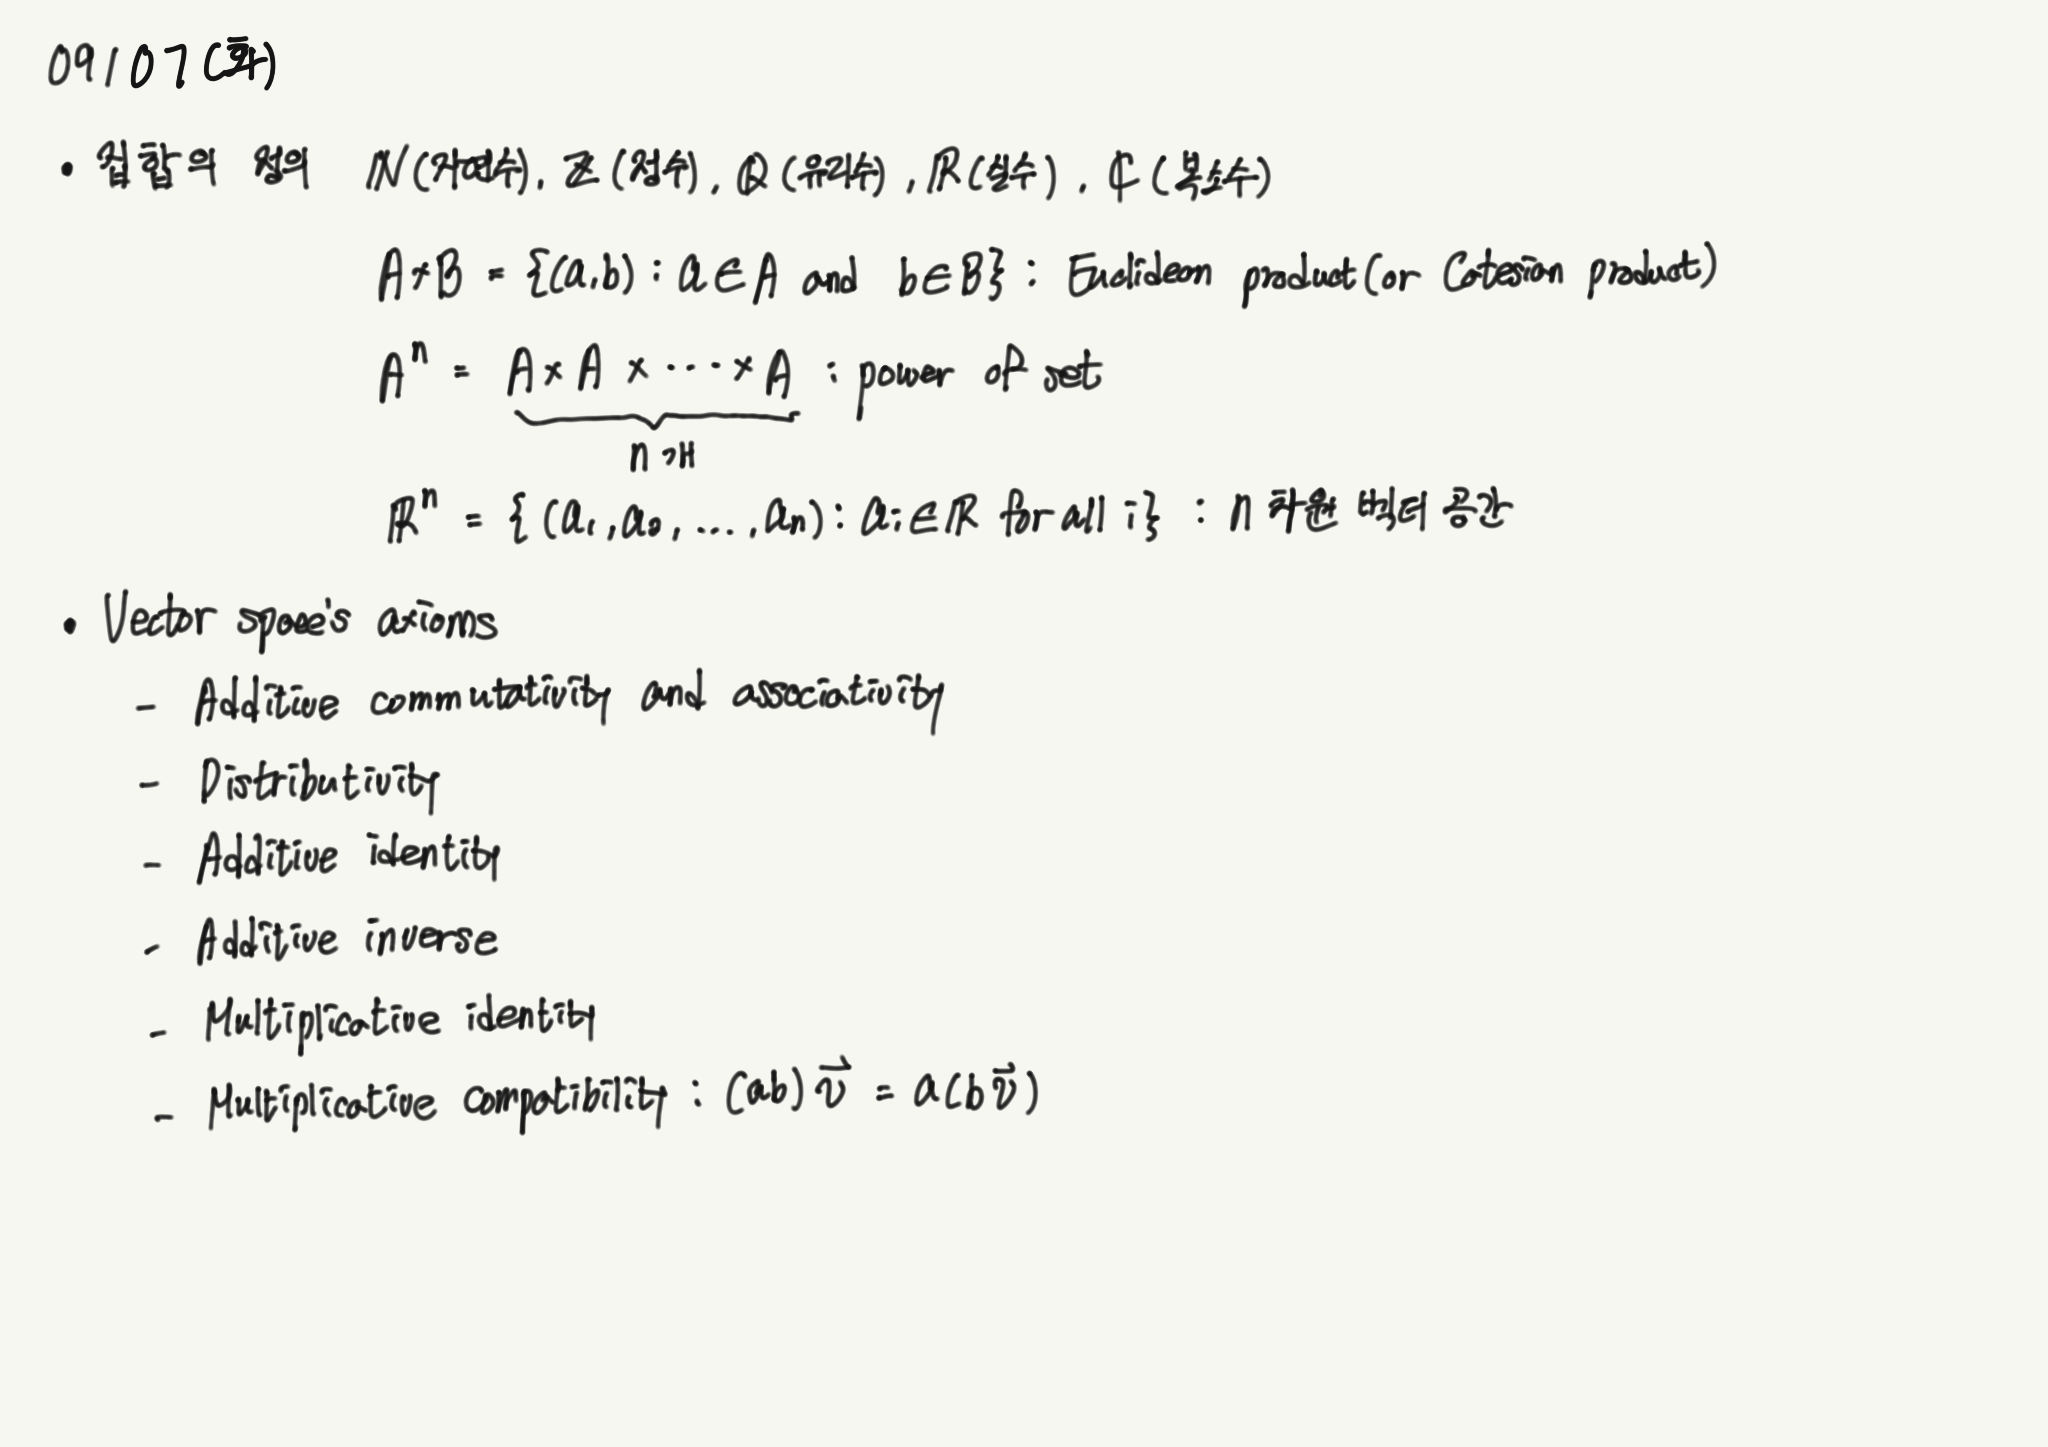 09/07 (화)
• 집합의 정의 ℕ(자연수), ℤ(정수), ℚ(유리수), ℝ(실수), ℂ(복소수)
A×B = {(a,b) : a∈A and b∈B} : Euclidean product (or Catesian product)
Aⁿ = A × A × ⋯ × A : power of set
n개
ℝⁿ = {(a₁, a₂, ..., aₙ) : aᵢ∈ℝ for all i} : n차원 벡터 공간
• Vector space's axioms
- Additive commutativity and associativity
- Distributivity
- Additive identity
- Additive inverse
- Multiplicative identity
- Multiplicative compatibility : (ab)v⃗ = a(bv⃗)